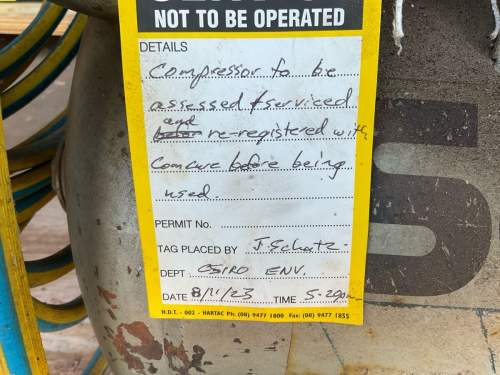 NOT TO BE OPERATED
DETAILS
Compressor to be
assessed & serviced
and
before re-registered with
Comcare before being
used.
PERMIT No.
TAG PLACED BY J Schatz
DEPT CSIRO ENV.
DATE 8/11/23 TIME 5.20pm
H.D.T. - 002 - HARTAC Ph: (08) 9477 1800 Fax: (08) 9477 1855
S